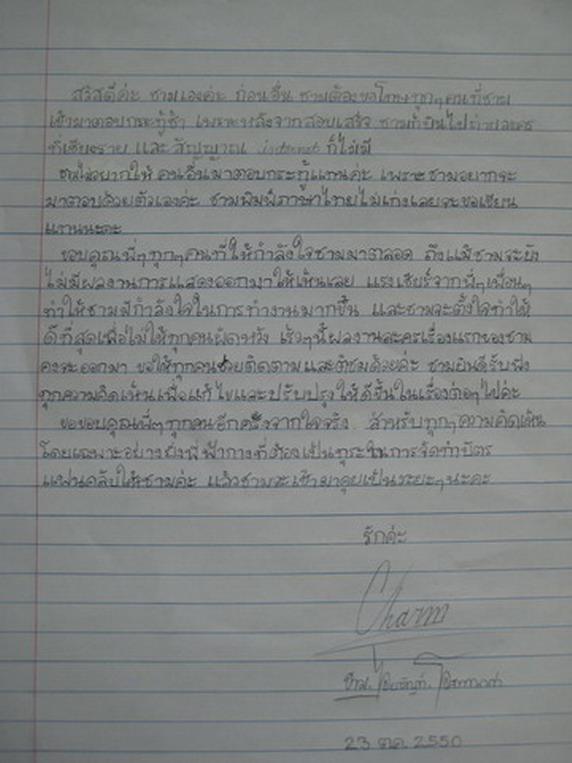 สวัสดีค่ะ ชามเองค่ะ ก่อนอื่น ชามต้องขอโทษทุกๆคนที่ชาม
เข้ามาตอบกระทู้ช้า เพราะหลังจากสอบเสร็จ ชามก็บินไปถ่ายละคร
ที่เชียงราย และสัญญาณ internet ก็ไม่มี
ชามไม่อยากให้คนอื่นมาตอบกระทู้แทนค่ะ เพราะชามอยากจะ
มาตอบด้วยตัวเองค่ะ ชามพิมพ์ภาษาไทยไม่เก่งเลยจะขอเขียน
แทนนะคะ
ขอบคุณพี่ๆทุกๆคนที่ให้กำลังใจชามมาตลอด ถึงแม้ชามจะยัง
ไม่มีผลงานการแสดงออกมาให้เห็นเลย แรงเชียร์จากพี่ๆเพื่อนๆ
ทำให้ชามมีกำลังใจในการทำงานมากขึ้น และชามจะตั้งใจทำให้
ดีที่สุดเพื่อไม่ให้ทุกคนผิดหวัง เร็วๆนี้ผลงานละครเรื่องแรกของชาม
คงจะออกมา ขอให้ทุกคนช่วยติดตามและติชมด้วยค่ะ ชามยินดีรับฟัง
ทุกความคิดเห็นเพื่อแก้ไขและปรับปรุงให้ดีขึ้นในเรื่องต่อๆไปค่ะ
ขอขอบคุณพี่ๆทุกคนอีกครั้งจากใจจริง สำหรับทุกๆความคิดเห็น
โดยเฉพาะอย่างยิ่งพี่ฟ้ากางที่ต้องเป็นธุระในการจัดทำบัตร
แฟนคลับให้ชามค่ะ แล้วชามจะเข้ามาคุยเป็นระยะๆนะคะ
รักค่ะ
Charm
ชาม.
23 ตค. 2550